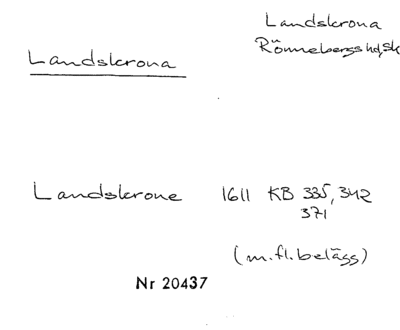 Landskrona
Landskrona
Rönnebergs hd, Sk
Landskrone 1611 KB 335, 342
371
(m.fl. belägg)
Nr 20437